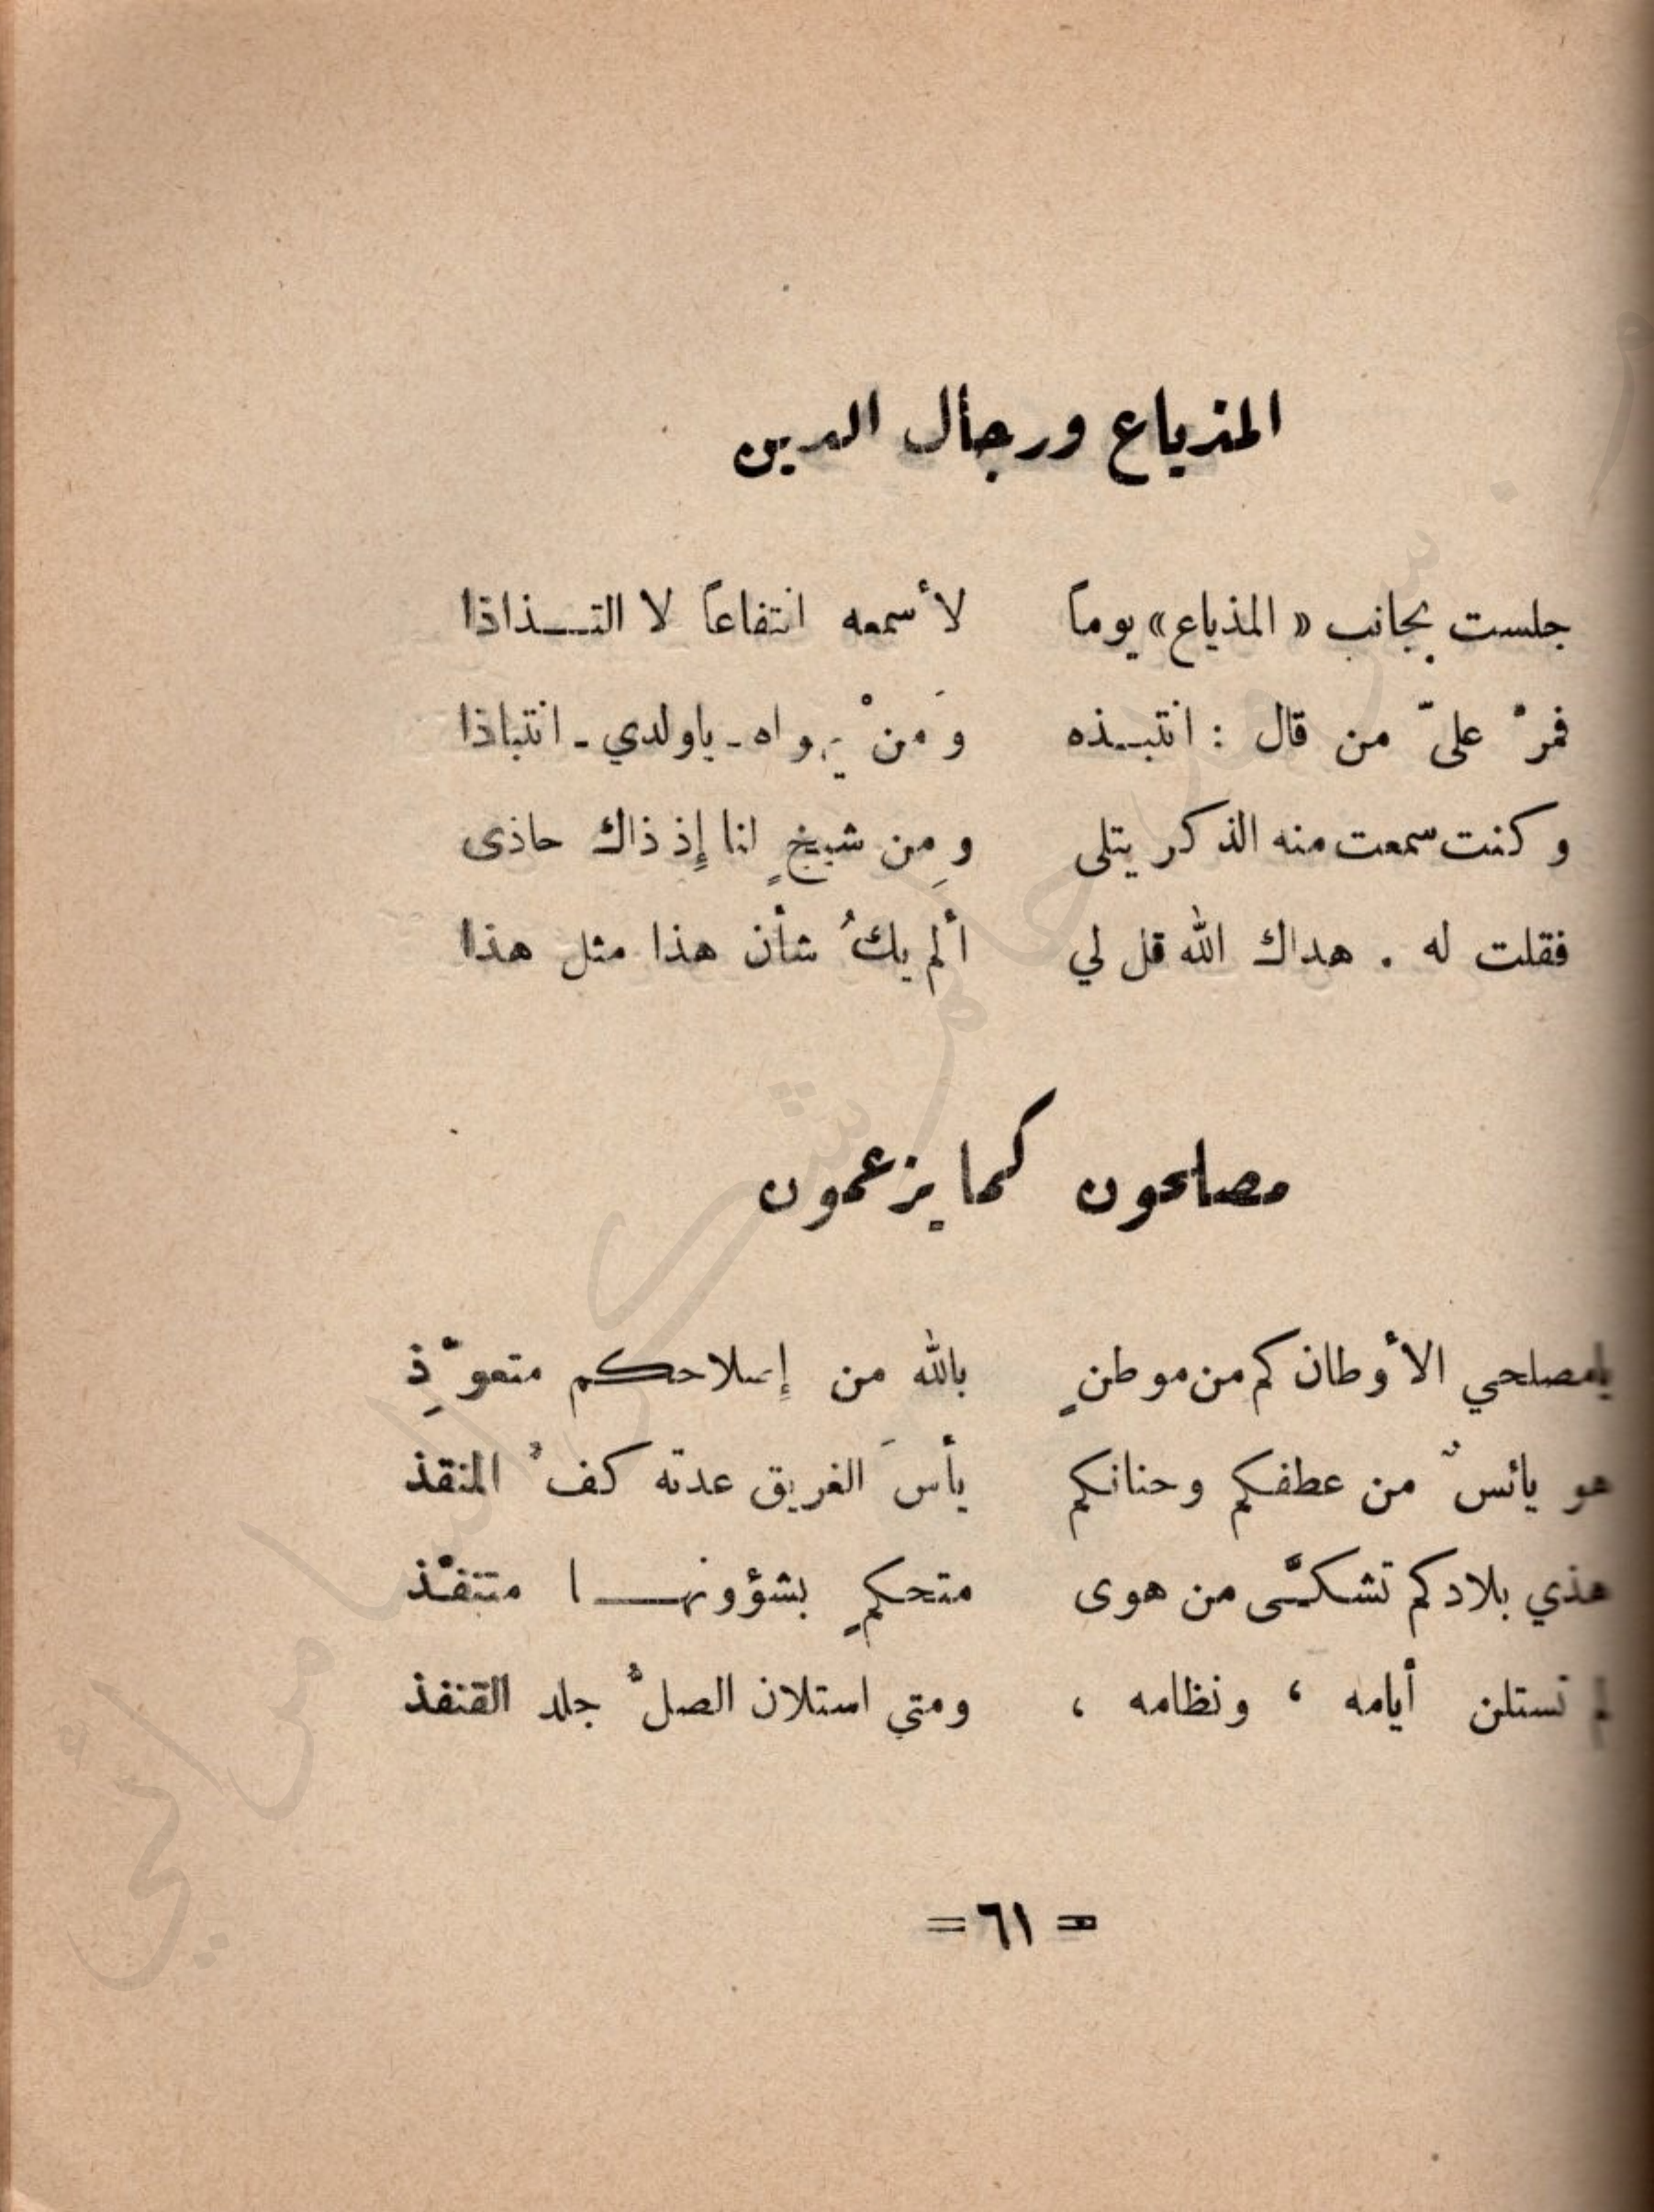 المذياع ورجال الدين
جلست بجانب « المذياع » يوماً لأسمعه انتفاعاً لا التـــذاذا
فمرّ عليّ من قال : انتبـــذه وَمنْ يهواه ـ ياولدي ـ انتباذا
وكنت سمعت منه الذكر يتلى ومِن شيخٍ انا إِذ ذاك حاذى
فقلت له . هداك الله قل لي ألم يكُ شأن هذا مثل هذا
مصلحون كما يزعمون
يامصلحي الأوطان كم من موطنٍ بالله من إِصلاحكم متعوّذِ
هو يائسٌ من عطفكم وحنانكم يأسَ الغريق عدته كفُّ المنقذ
هذي بلادكم تشكَّى من هوى متحكمٍ بشؤونهـــا متنفّذ
لم تستلن أيامه ، ونظامه ، ومتى استلان الصلُّ جلد القنفذ
= ٦١ =